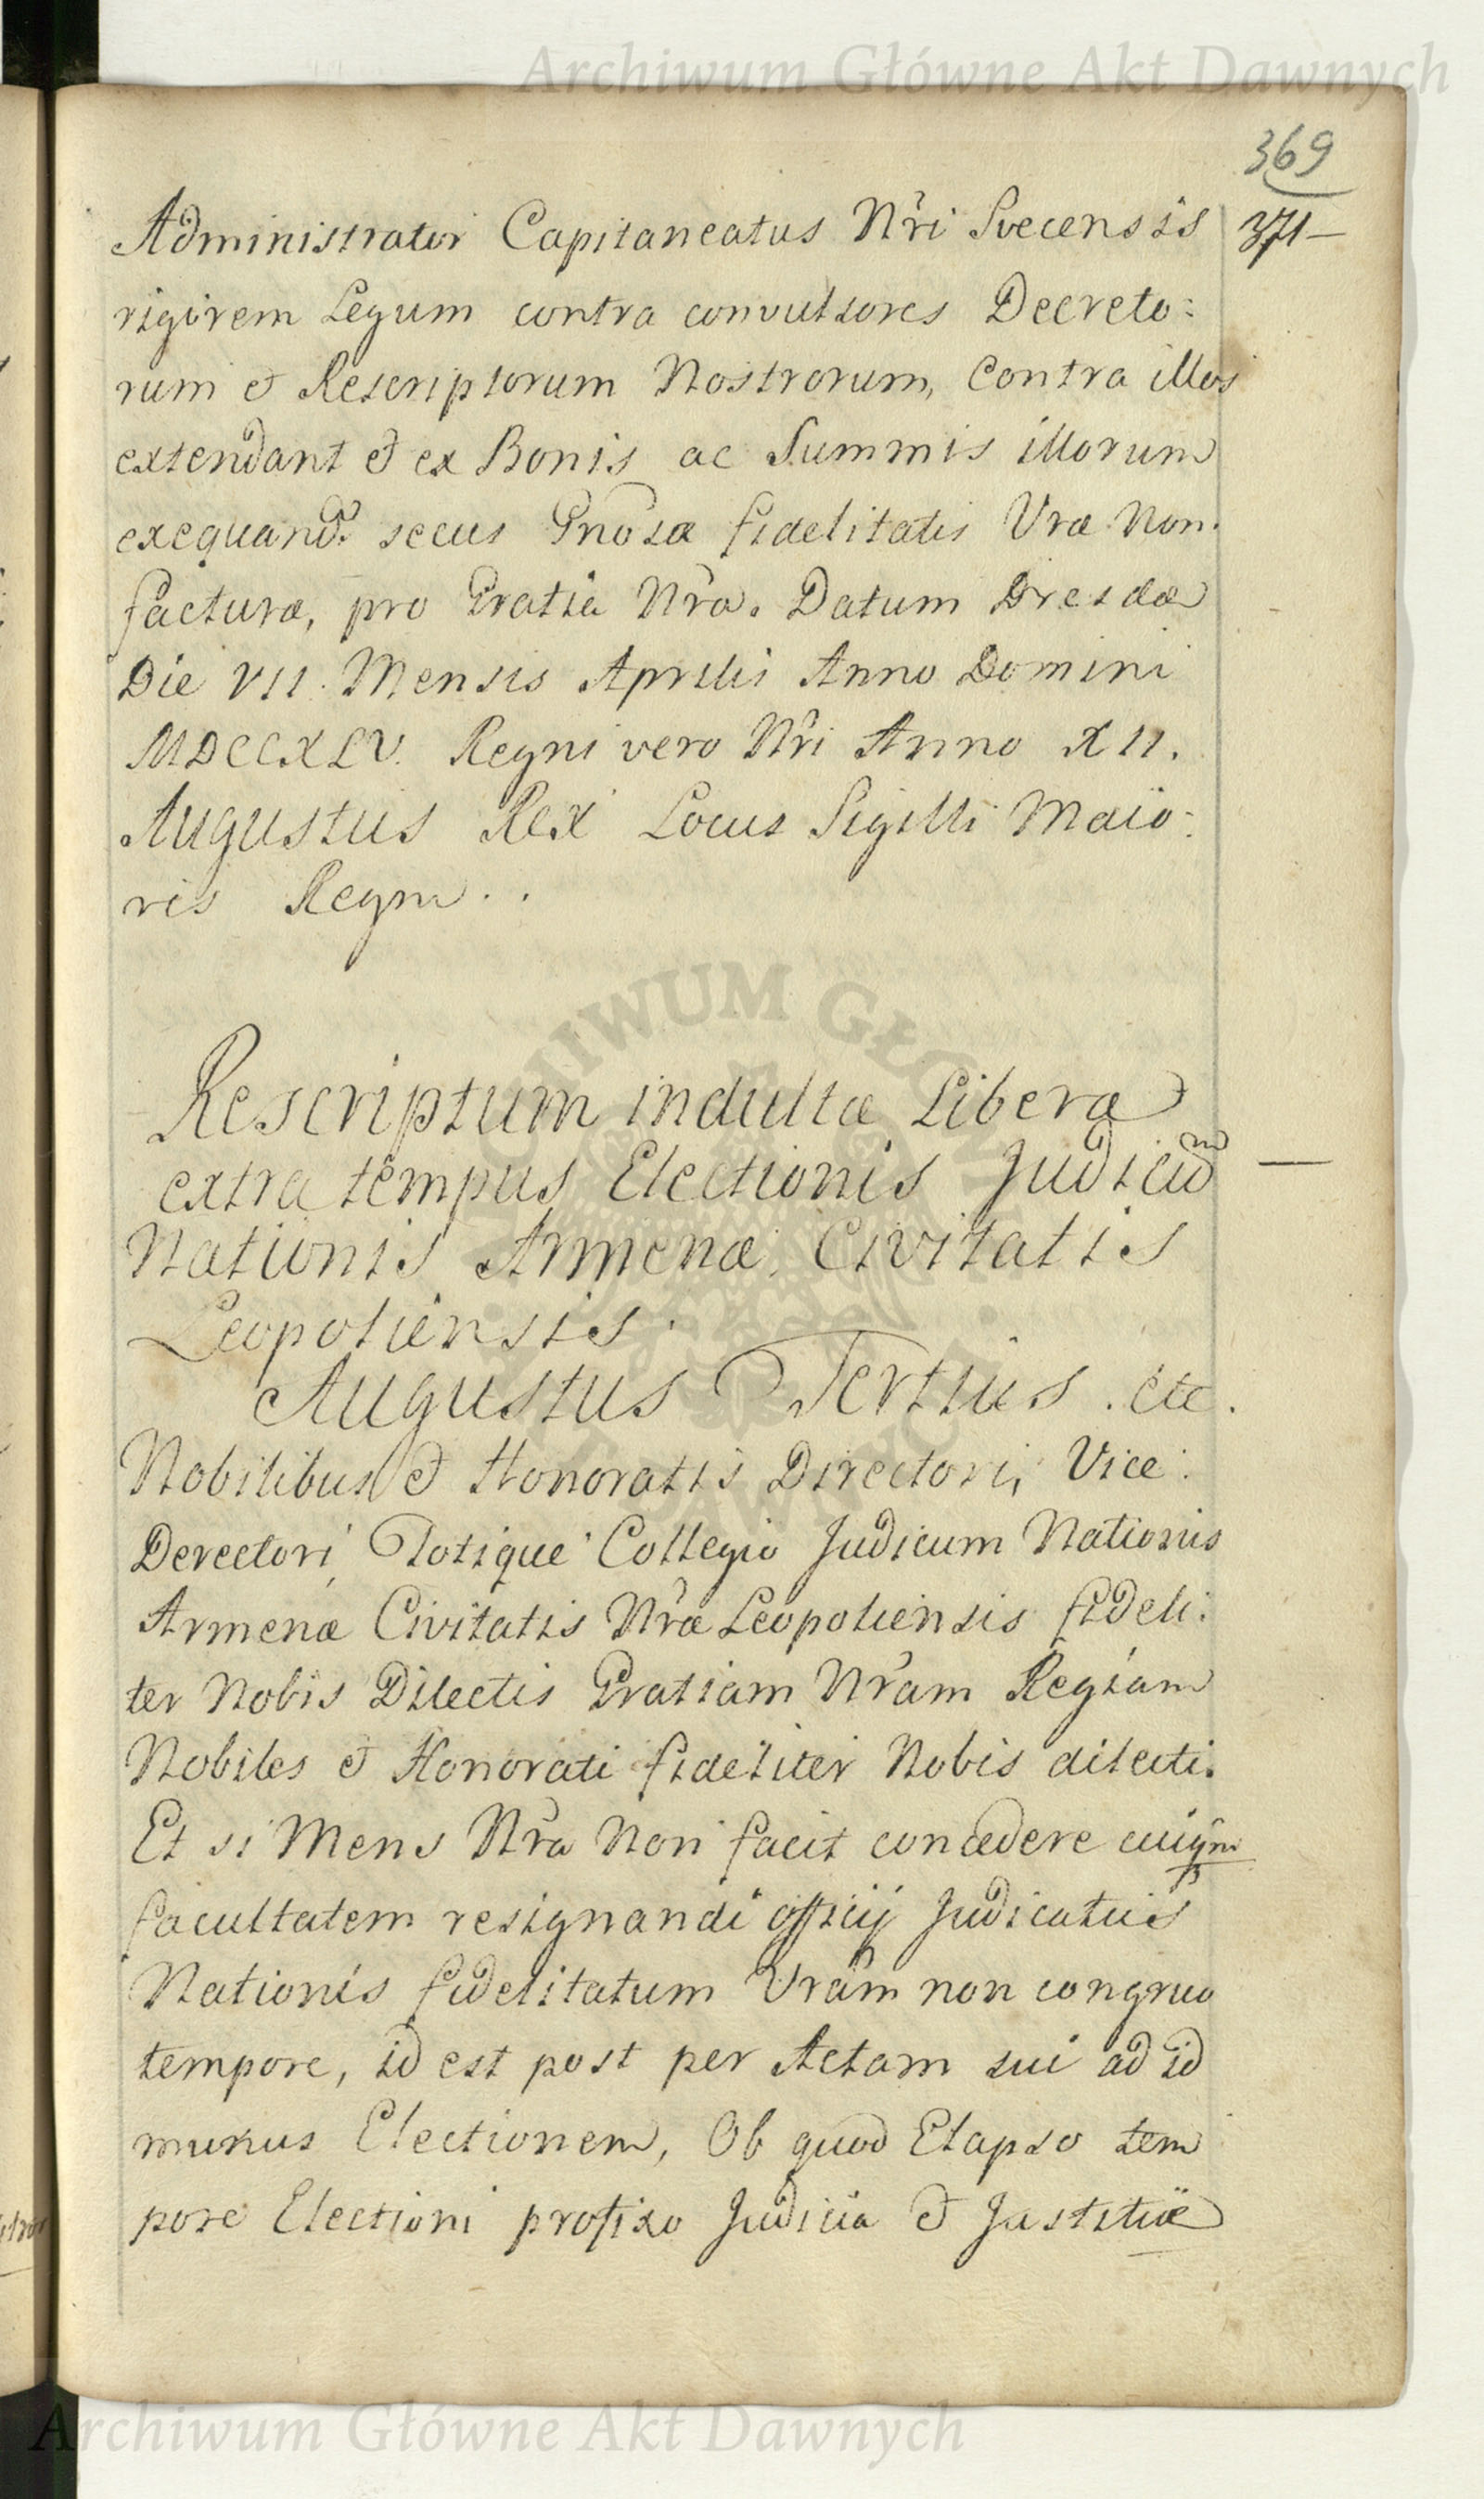 Archiwum Główne Akt Dawnych
369
Administrator Capitaneatus Nri Svecensis 371—
rigirem Legum contra convulsores Decreto:
rum et Rescriptorum Nostrorum, Contra illos
extendant et ex Bonis ac Summis illorum
exequand. secus Gnosa fidelitatis Vrae Non.
factura, pro Gratia Nra. Datum Dresdae
Die VII. Mensis Aprilis Anno Domini
MDCCXLV. Regni vero Nri Anno XII.
Augustus Rex Locus Sigilli Maio:
ris Regni . .
Rescriptum indultae Liberae
extra tempus Electionis Judicum
Nationis Armenae Civitatis
Leopoliensis.
Augustus Tertius . etc.
Nobilibus et Honoratis Directori, Vice:
Derectori, Totique Collegio Judicum Nationis
Armenae Civitatis Nrae Leopoliensis fideli:
ter Nobis Dilectis Gratiam Nram Regiam
Nobiles et Honorati fideliter Nobis dilecti.
Et si Mens Nra Non facit concedere
facultatem resignandi officij Judicatus
Nationis fidelitatum Vram non congruo
tempore, id est post per Actam sui ad id
munus Electionem, Ob quod Elapso tem
pore Electioni profixo Judicia et Justitiae
Archiwum Główne Akt Dawnych